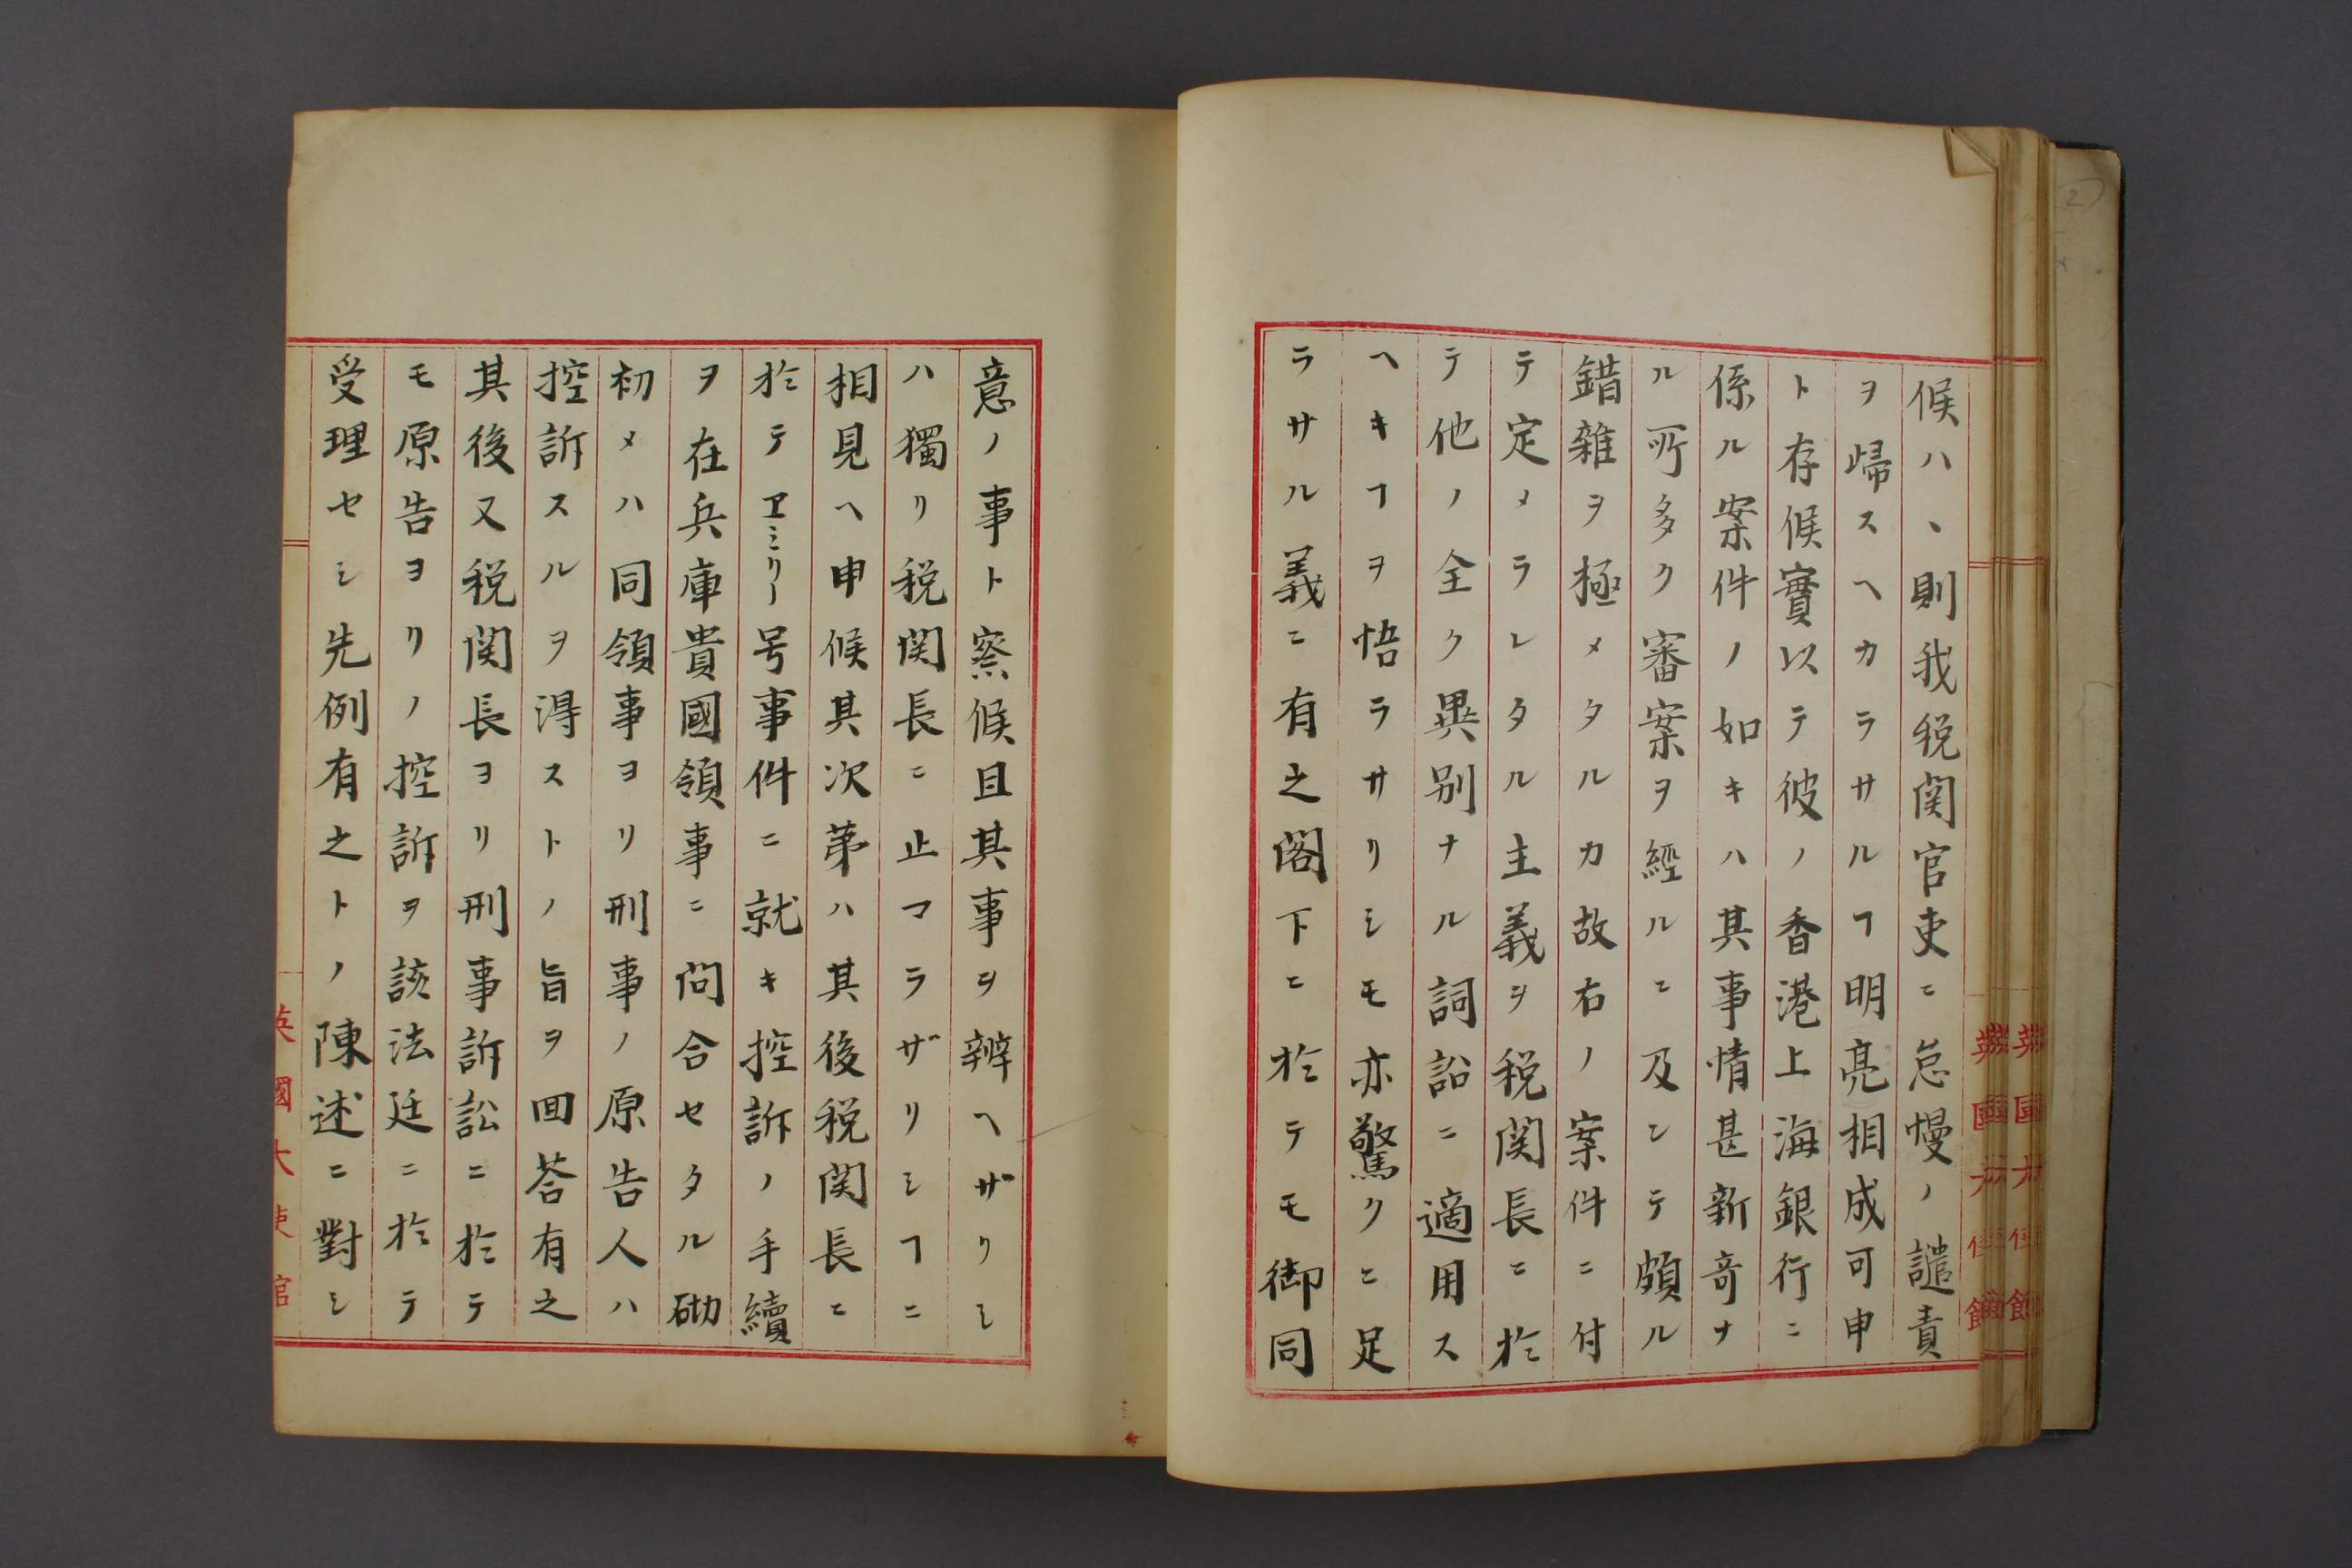 候ハヽ則我税関官吏ニ怠慢ノ譴責
ヲ歸スヘカラサルヿ明亮相成可申
ト存候實以テ彼ノ香港上海銀行ニ
係ル案件ノ如キハ其事情甚新奇ナ
ル所多ク審案ヲ經ルニ及ンテ頗ル
錯雜ヲ極メタルカ故右ノ案件ニ付
テ定メラレタル主義ヲ税関長ニ於
テ他ノ全ク異別ナル詞訟ニ適用ス
ヘキヿヲ悟ラサリシモ亦驚クニ足
ラサル義ニ有之閣下ニ於テモ御同
意ノ事ト察候且其事ヲ辨ヘザリシ
ハ獨リ税関長ニ止マラザリシヿニ
相見ヘ申候其次第ハ其後税関長ニ
於テヱミリー号事件ニ就キ控訴ノ手續
ヲ在兵庫貴國領事ニ問合セタル砌
初メハ同領事ヨリ刑事ノ原告人ハ
控訴スルヲ得ストノ旨ヲ回答有之
其後又税関長ヨリ刑事訴訟ニ於テ
モ原告ヨリノ控訴ヲ該法廷ニ於テ
受理セシ先例有之トノ陳述ニ對シ
英國大使館